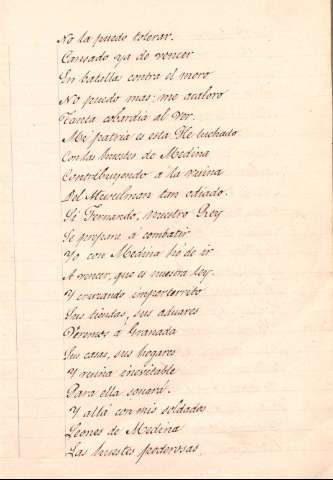 No la puedo tolerar.
Cansado ya de vencer
En batalla contra el moro
No puedo mas; me acaloro
Tanta cobardia al ver.
Mi patria es esta. He luchado
Con las huestes de Medina
Contribuyendo a la ruina
Del Musulman tan odiado.
Si Fernando, nuestro Rey
Se prepara a combatir
Yo con Medina hé de ir
A vencer, que es nuestra ley.
Y cruzando
Sus tiendas, sus aduares
Veremos á Granada
Sus casas, sus hogares
Y ruina inevitable
Para ella sonará.
Y allá con mis soldados
Leones de Medina
Las huestes poderosas